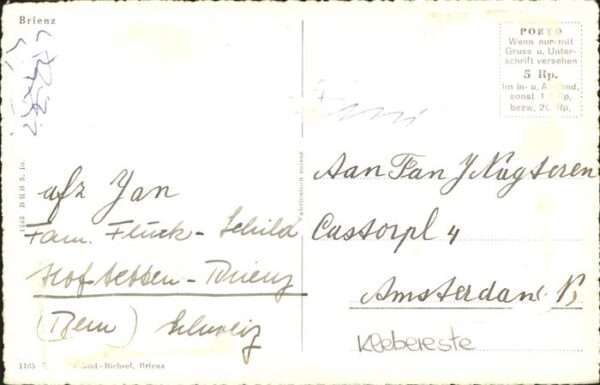 Brienz
PORTO
Wenn nur mit
Gruss u. Unter-
schrift versehen
5 Rp.
Im in- u. Ausland,
sonst
bezw. 20 Rp.
afz Jan
Fam. Flück-Schild
Hofstetten-Brienz
(Bern) Schweiz
Aan Fam J Nugteren
Castorpl 4
Amsterdam N
Klebereste
1165
-Bichsel, Brienz